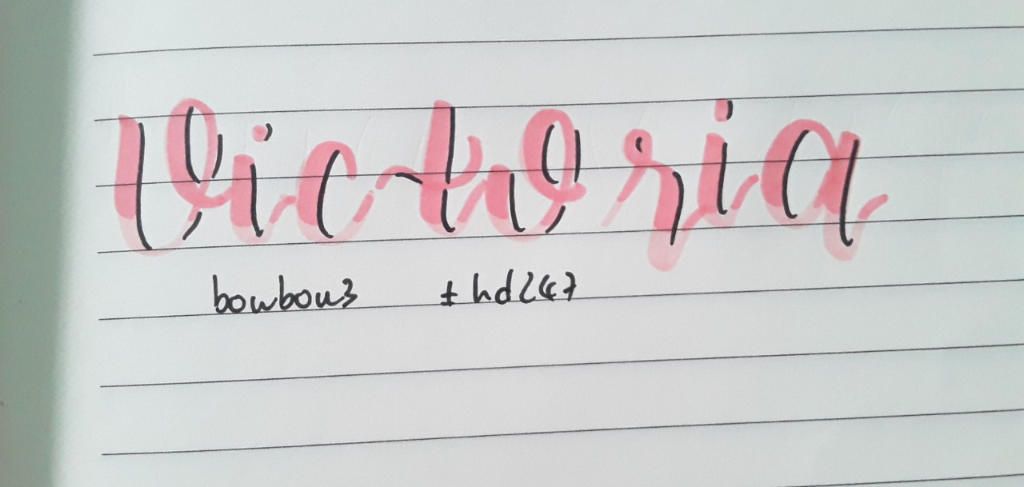 Victoria
bowbou3 thd247